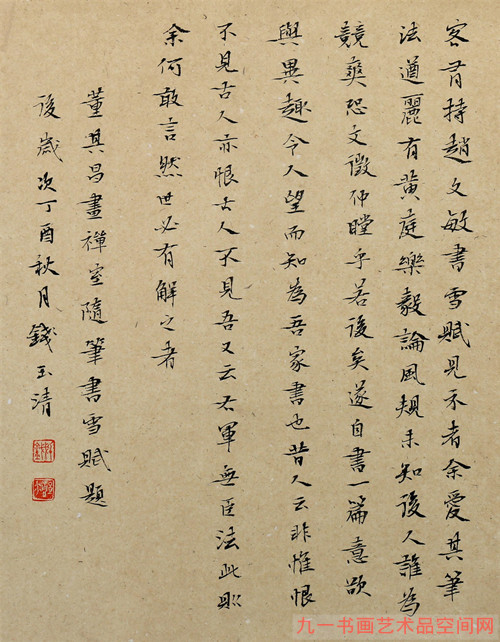 客有持趙文敏書雪賦見示者余愛其筆
法遒麗有黄庭樂毅論風規未知後人誰為
競爽恐文徵仲瞠乎若後矣遂自書一篇意欲
與異趣令人望而知為吾家書也昔人云非惟恨
不見古人亦恨古人不見吾又云右軍無臣法此則
余何敢言然世必有解之者
董其昌畫禪室隨筆書雪賦題
後歲次丁酉秋月錢玉清
九一书画艺术品空间网